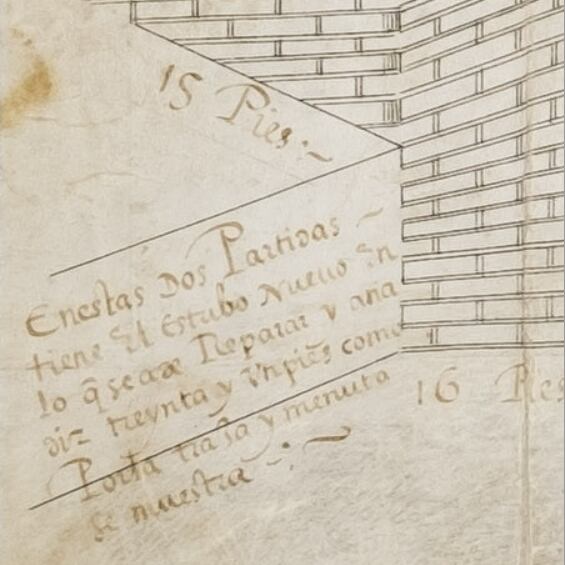 15 Pies:~
Enestas Dos Partidas ~
tiene El Estribo Nueuo En
lo q̃ se a de Reparar y aña
dir treynta y Vn piẽs como
Por la traça y menuta
se muestra ~:~
16 Pies